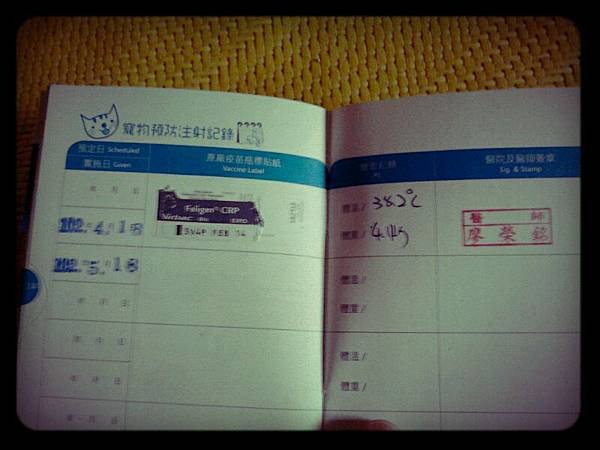 寵物預防注射記錄
預定日 Scheduled
實施日 Given
原廠疫苗瓶標貼紙
Vaccine Label
醫院及醫師簽章
Sig. & Stamp
年 月 日
102.4.18
Feligen® CRP
Virbac
3V4P FEB 14
體溫 / 38.2°C
體重 / 4.1kg
醫師
廖榮銘
102.5.18
體溫 /
體重 /
年 月 日
年 月 日
體溫 /
體重 /
年 月 日
年 月 日